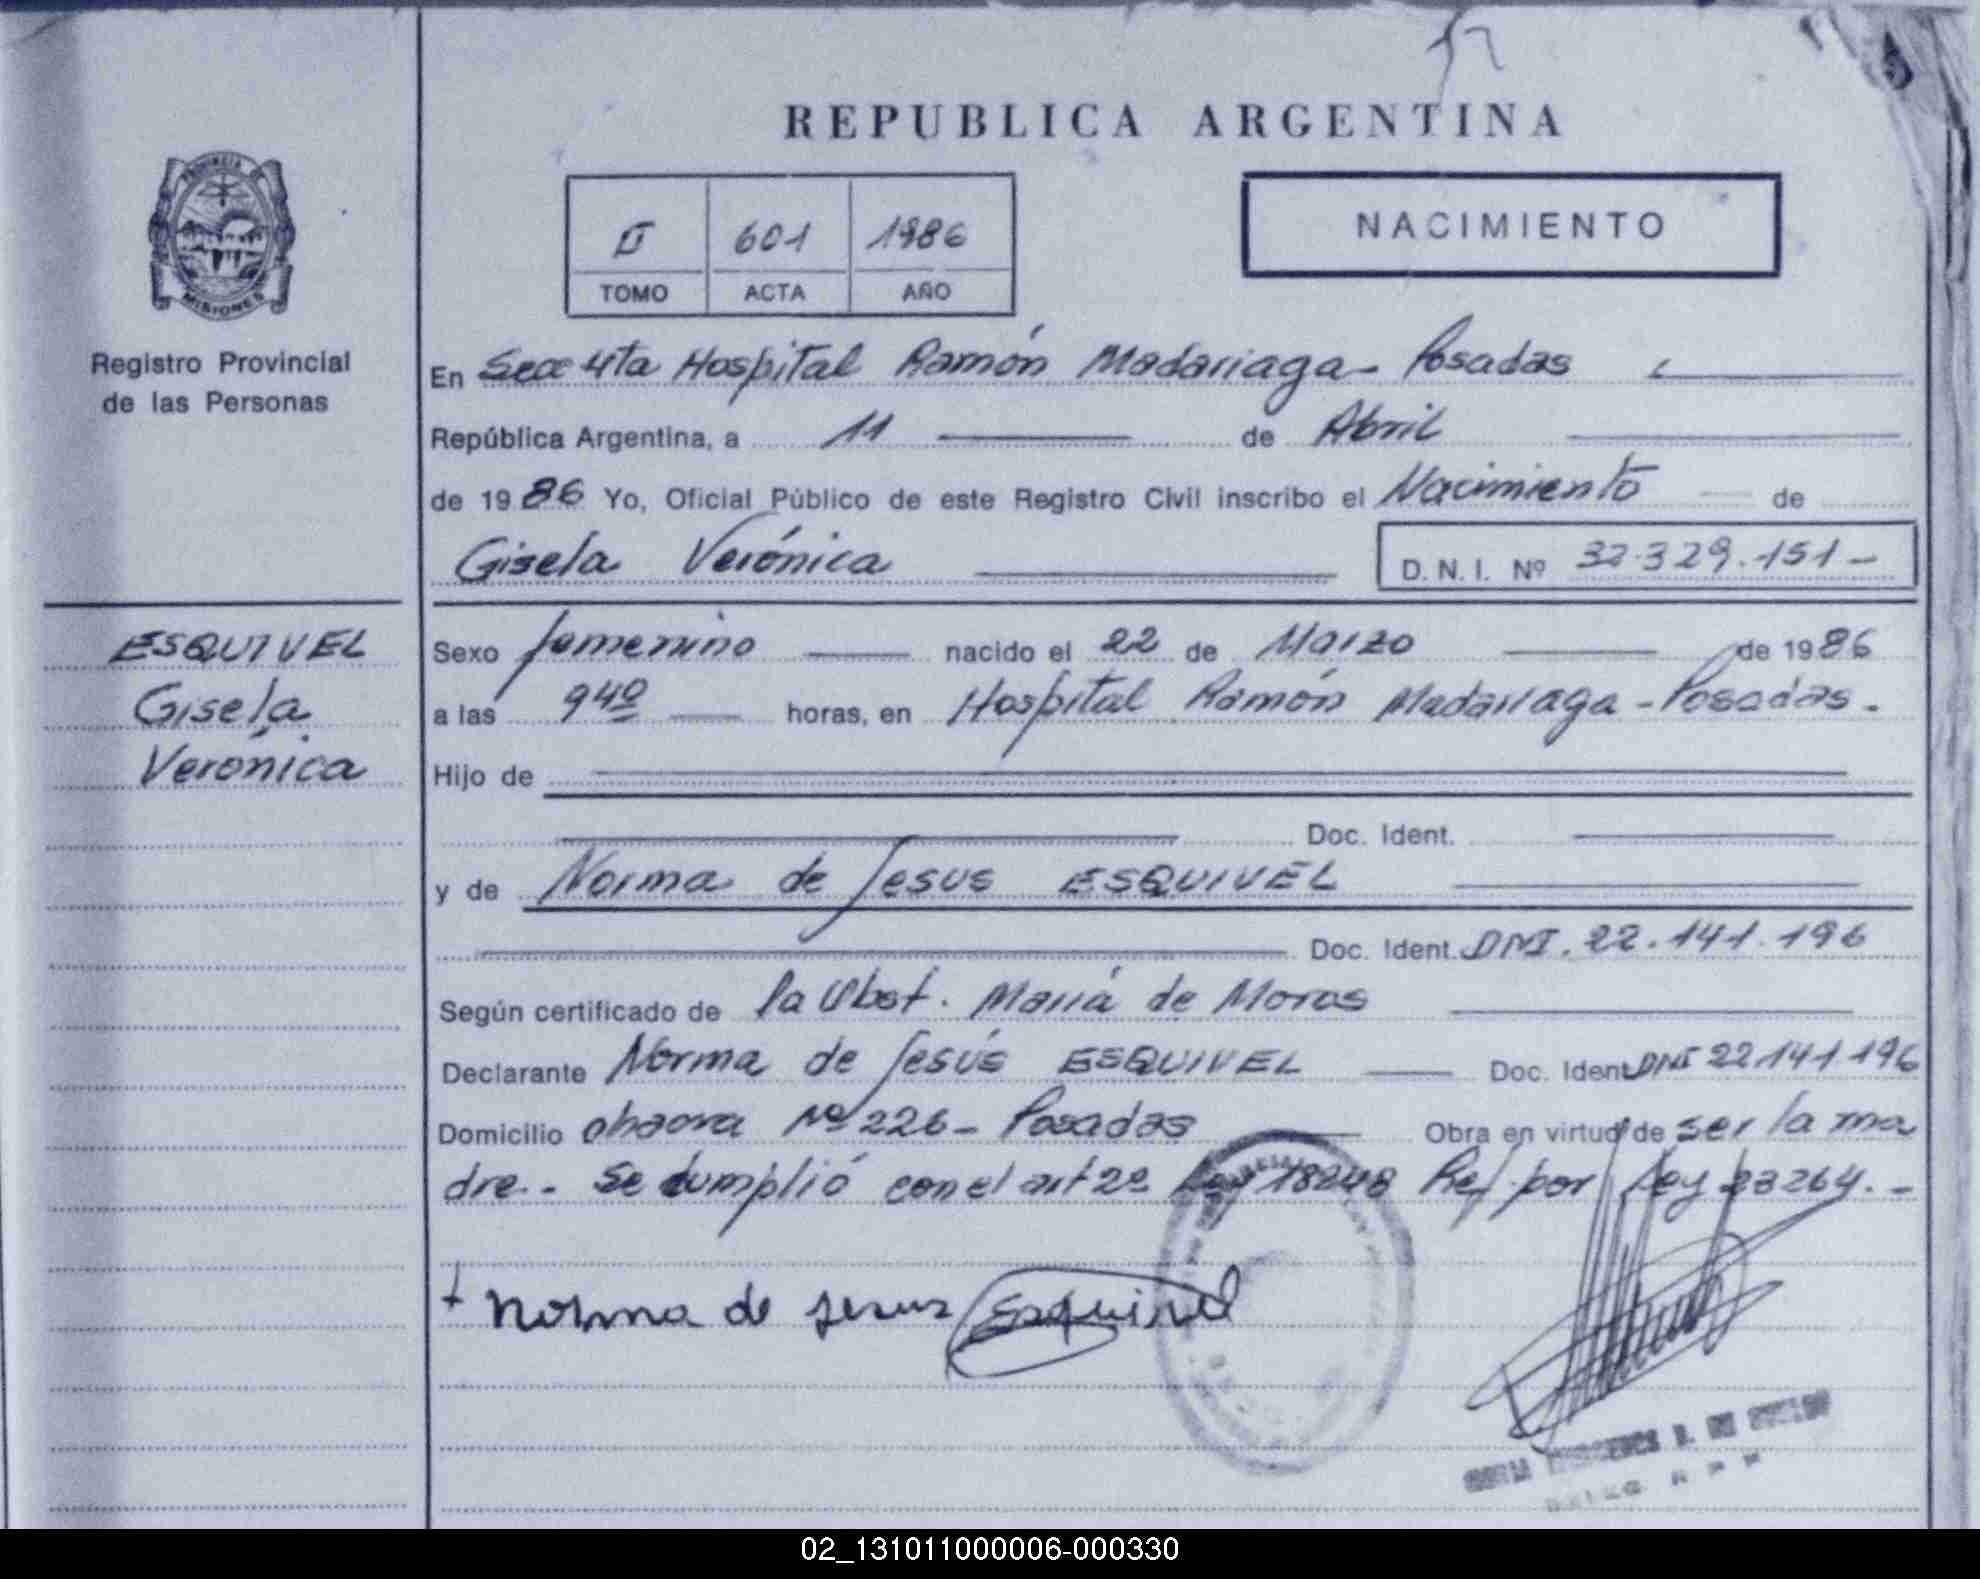 REPUBLICA ARGENTINA
II 601 1986
TOMO ACTA AÑO
NACIMIENTO
PROVINCIA DE
MISIONES
Registro Provincial
de las Personas
En Secc 4ta Hospital Ramón Madariaga - Posadas
República Argentina, a 11 de Abril
de 1986 Yo, Oficial Público de este Registro Civil inscribo el Nacimiento de
Gisela Verónica D. N. I. Nº 32.329.151 -
ESQUIVEL
Gisela
Verónica
Sexo femenino nacido el 22 de Marzo de 1986
a las 9 40 horas, en Hospital Ramón Madariaga - Posadas.
Hijo de
Doc. Ident.
y de Norma de Jesus ESQUIVEL
Doc. Ident. DNI. 22.141.196
Según certificado de la Obst. María de Moras
Declarante Norma de Jesús ESQUIVEL Doc. Ident DNI 22.141.196
Domicilio Nº 226 - Posadas Obra en virtud de ser la ma
dre. - Se cumplió con el art 2º Ley 18248 Ref. por Ley 23264. -
+ Norma de Jesus Esquivel
02_131011000006-000330